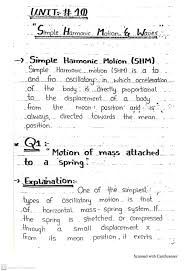 UNIT: # 10
"Simple Harmonic Motion & Waves"
→ Simple Harmonic Motion (SHM)
Simple Harmonic motion (SHM) is a to
and fro oscillatory in which acceleration
of the body is directly proportional
to the displacement of a body
from the mean position and is
always directed towards the mean
position.
Q1:
"Motion of mass attached
to a spring"
→ Explanation:-
One of the simplest
types of oscillatory motion is that
of horizontal mass-spring system. If
the spring is stretched or compressed
through a small displacement x
from its mean position, it exerts
Scanned with CamScanner